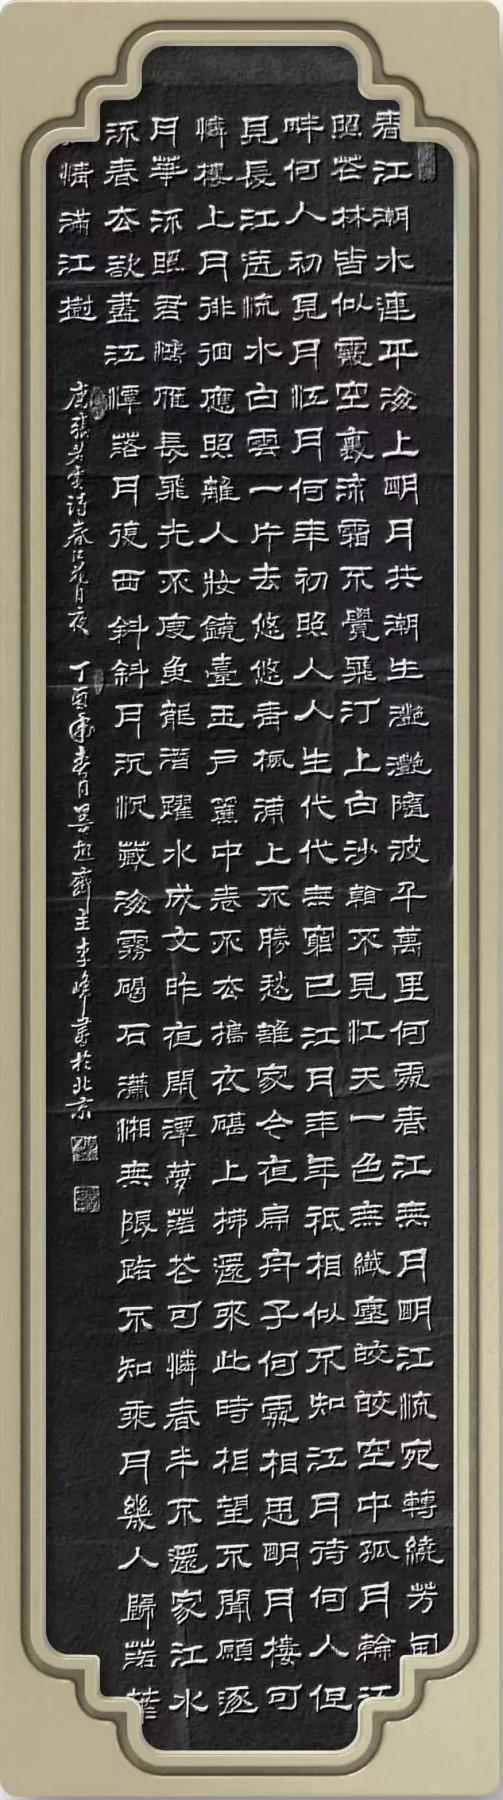 春江潮水連平海上明月共潮生灔灔隨波千萬里何處春江無月明江流宛轉繞芳甸
照花林皆似霰空裏流霜不覺飛汀上白沙看不見江天一色無纖塵皎皎空中孤月輪江
畔何人初見月江月何年初照人人生代代無窮已江月年年祗相似不知江月待何人但
見長江送流水白雲一片去悠悠青楓浦上不勝愁誰家今夜扁舟子何處相思明月樓可
憐樓上月徘徊應照離人妝鏡臺玉戶簾中卷不去擣衣碪上拂還來此時相望不聞願逐
月華流照君鴻雁長飛光不度魚龍潛躍水成文昨夜閒潭夢落花可憐春半不還家江水
流春去欲盡江潭落月復西斜斜月沉沉藏海霧碣石瀟湘無限路不知乘月幾人歸落葉
情滿江樹
唐張若虛詩春江花月夜 丁酉年春月齋主李峰書於北京